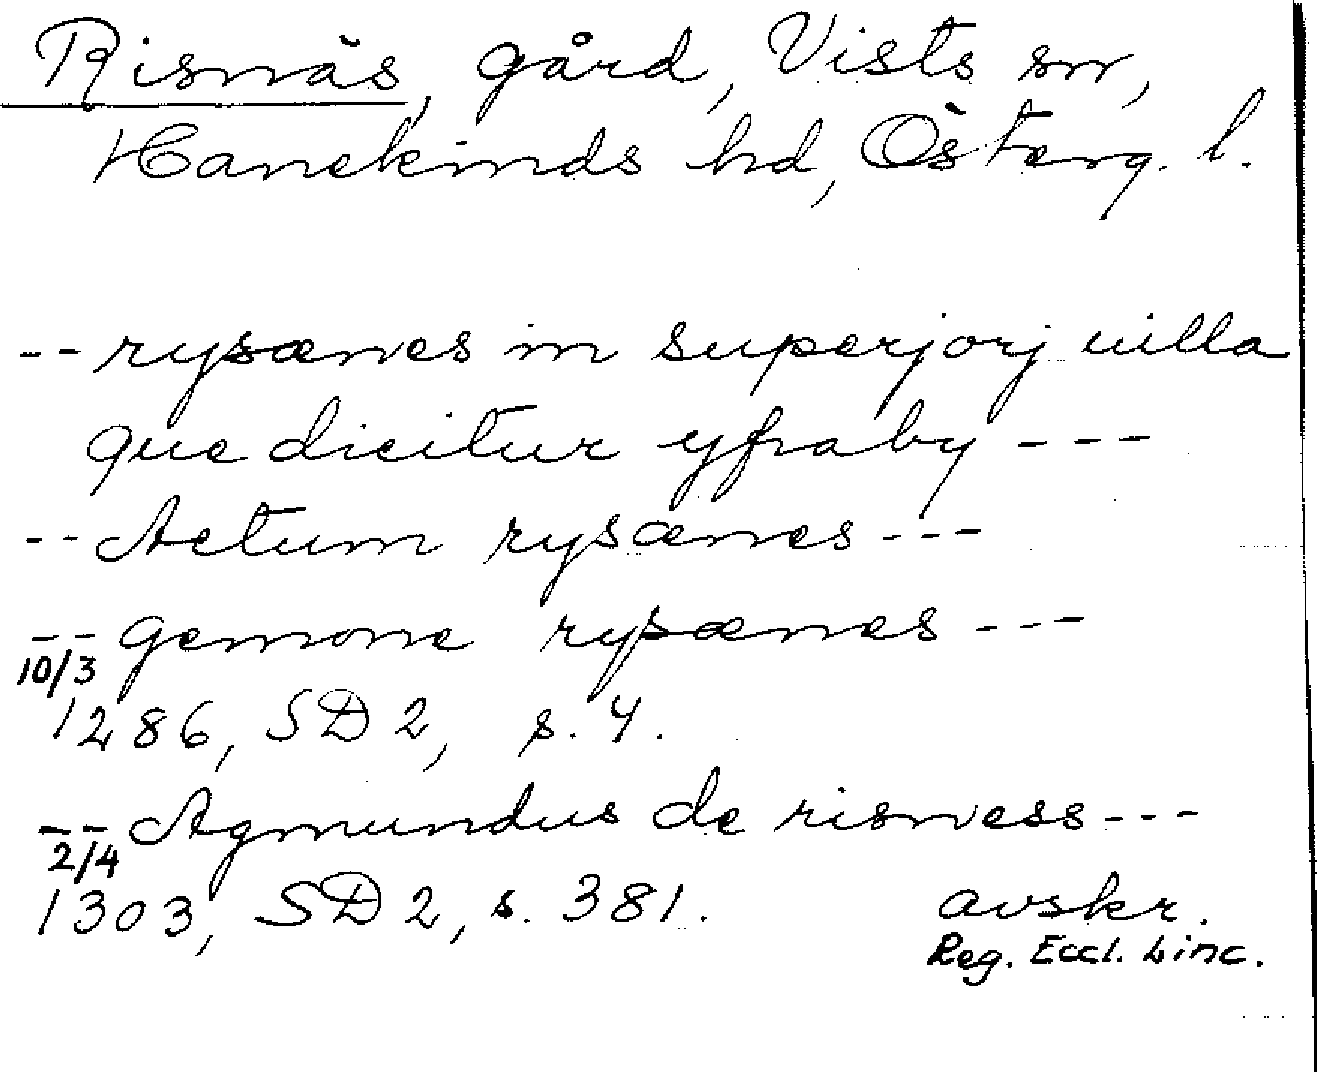 Risnäs, gård, Vists sn,
Hanekinds hd, Österg. l.
-- rysænes in superjorj uilla
que dicitur yfraby ---
-- Actum rysænes ---
-- Gemone rysænes ---
10/3
1286, SD 2, s. 4.
-- Agmundus de risness ---
2/4
1303, SD 2, s. 381. avskr.
Reg. Eccl. Linc.